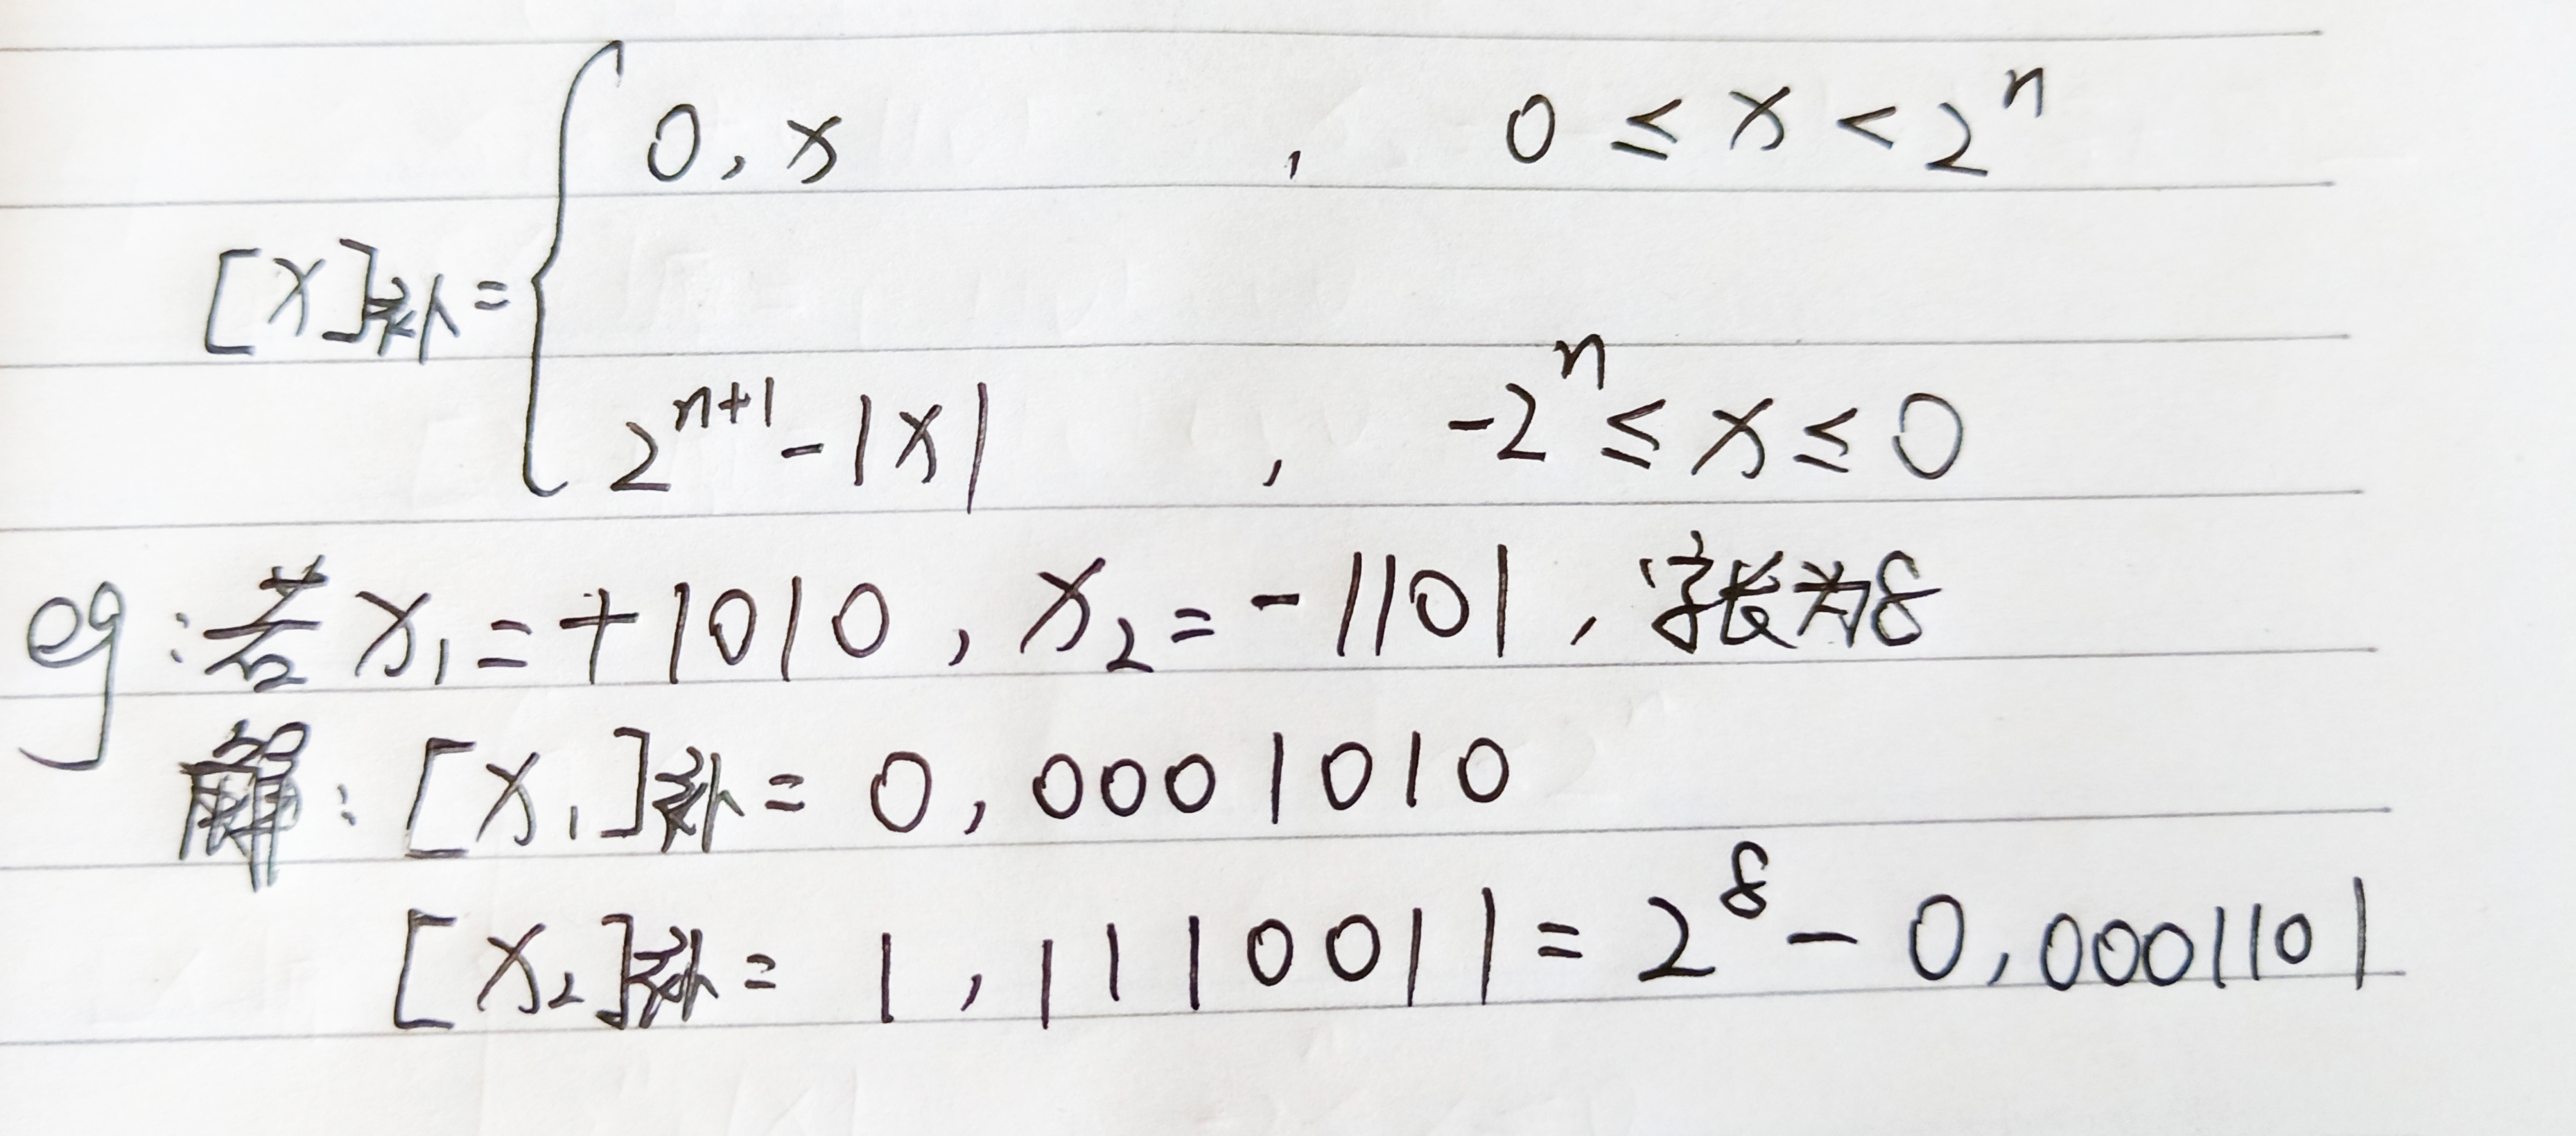 0, x , 0 ≤ x < 2^n
[x]补 =
2^{n+1} - |x| , -2^n ≤ x ≤ 0
eg: 若 x₁ = +1010, x₂ = -1101, 字长为8
解: [x₁]补 = 0, 0001010
[x₂]补 = 1, 1110011 = 2^8 - 0, 0001101